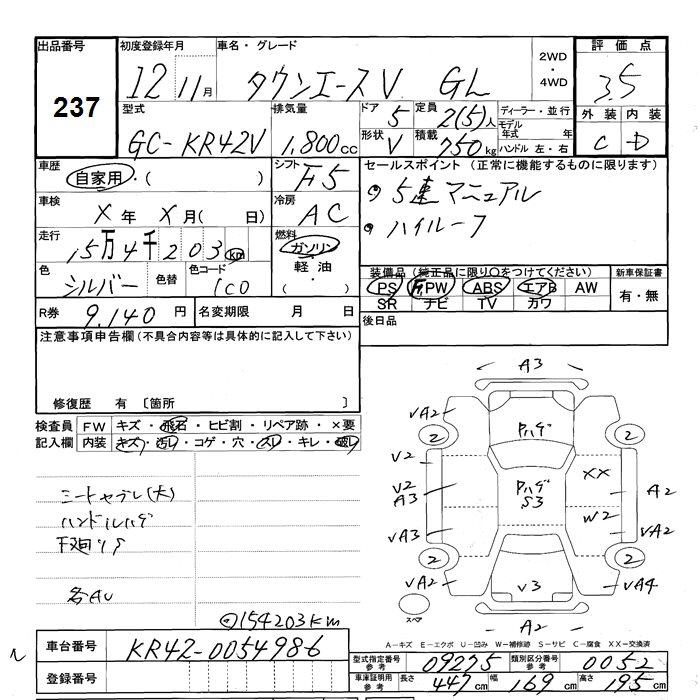 出品番号 初度登録年月 車名・グレード 2WD ・ 4WD 評価点
237 12 11月 タウンエースV GL 3.5
型式 排気量 ドア 5 定員 2(5)人 ディーラー・並行 外装 内装
GC-KR42V 1,800cc 形状 V 積載 750kg モデル年式 年 ハンドル 左・右 C D
車歴 自家用・( ) シフト F5 セールスポイント (正常に機能するものに限ります)
車検 X年 X月( 日) 冷房 AC 5速マニュアル
ハイルーフ
走行 15万4千203km 燃料 ガソリン
軽油
( ・ )
色 シルバー 色替 色コード 1C0 装備品 (純正品に限り○をつけてください) 新車保証書
PS F,PW ABS エアB AW 有・無
SR ナビ TV カワ
R券 9,140円 名変更期限 月 日 後日品
注意事項申告欄(不具合内容等は具体的に記入して下さい)
修復歴 有 〔箇所 〕
検査員 FW キズ・飛石・ヒビ割・リペア跡・×要
記入欄 内装 キズ・汚れ・コゲ・穴・スレ・キレ・破れ
シートヤブレ(大)
ハンドルハゲ
各AU
154203km
A3
VA2
Pハゲ
2 2
V2
XX
V2
A3
Pハゲ
S3
A2
W2
VA3
VA2
2 2
VA2
V3
VA4
スペア
A2
A-キズ E-エクボ U-凹み W-補修跡 S-サビ C-腐食 XX-交換済
車台番号 KR42-0054986
登録番号
型式指定番号 参考 09275 類別区分番号 参考 0052
車庫証明用 参考 長さ 447cm 幅 169cm 高さ 195cm